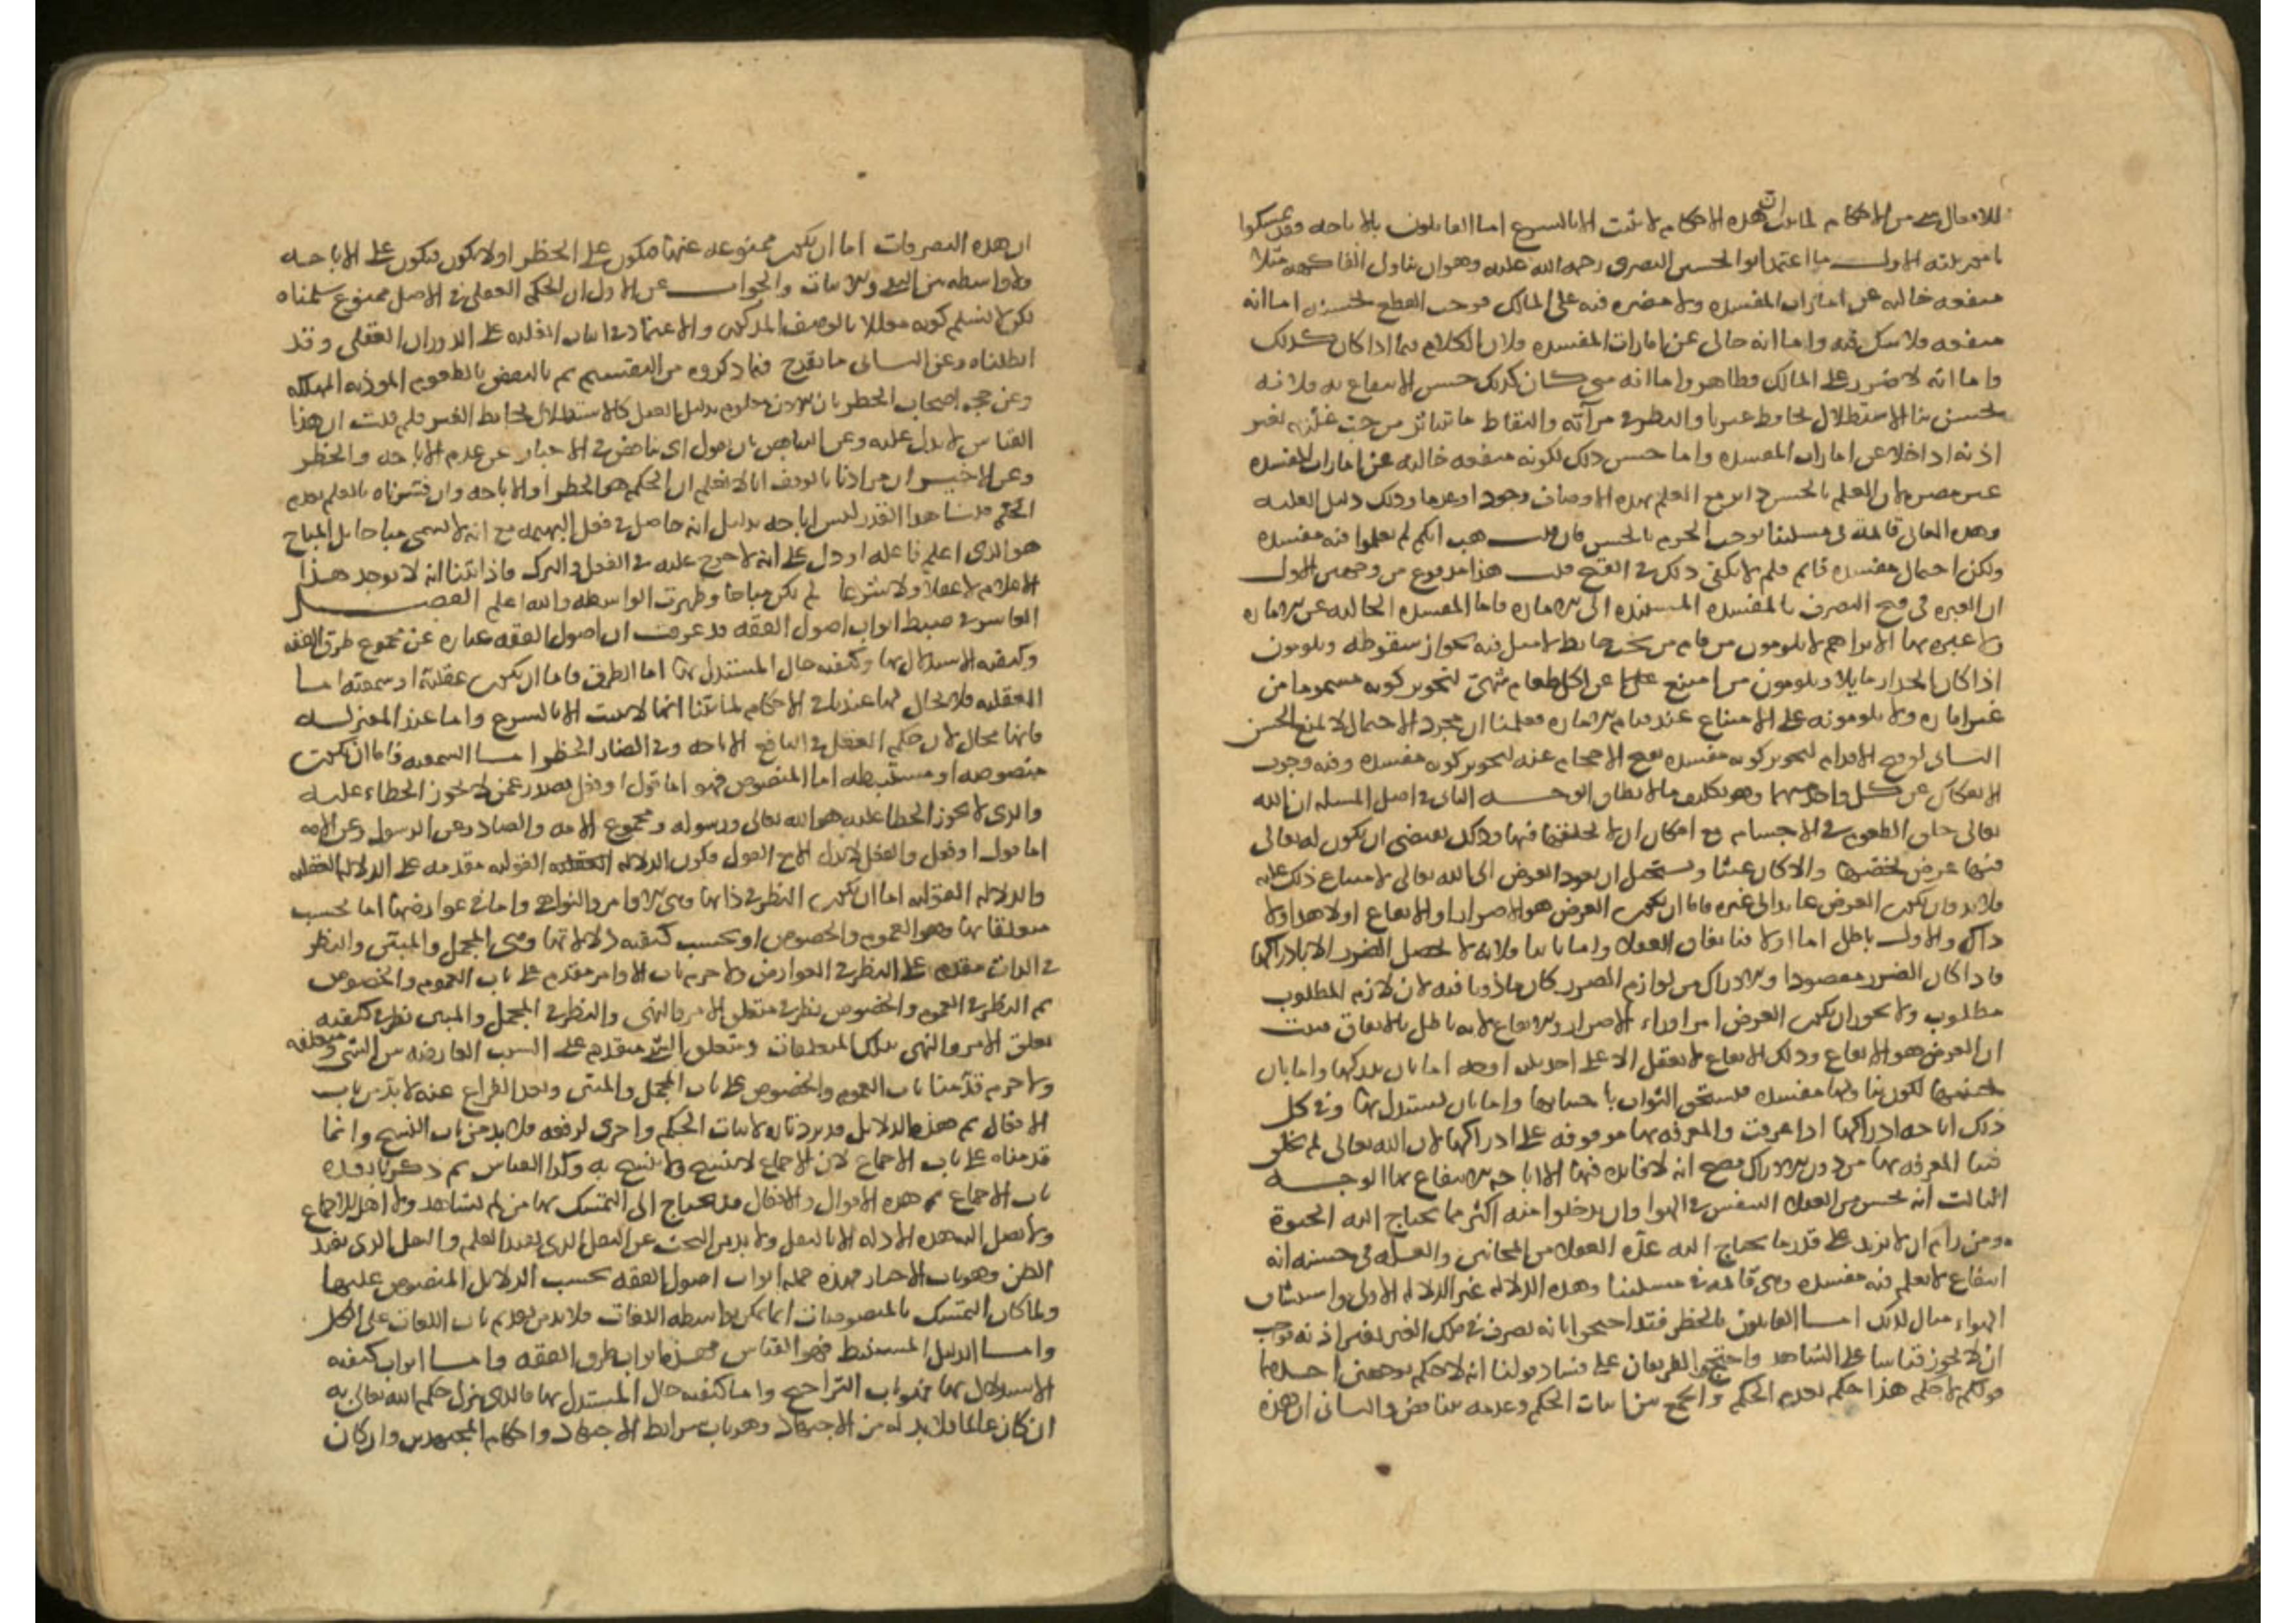 للافعال شي من الاحكام لما بينا ان هذه الاحكام لا تثبت الا بالشرع اما القايلون بالاباحه فقد تمسكوا
بامور ثلثه الاول ما اعتمد ابو الحسين البصري رحمه الله عليه وهو ان تناول الفاكهه مثلا
منفعه خاليه عن امارات المفسده ولا مضره فيه على المالك فوجب القطع بحسنه اما انه
منفعه فلا شك فيه واما انه خالي عن امارات المفسده فلان الكلام فيما اذا كان كذلك
واما انه لا ضرر على المالك فظاهر واما انه متى كان كذلك حسن الانتفاع به فلانه
يحسن منا الاستظلال بحايط غيرنا والنظر في مرآته والتقاط ما تناثر من حب غلته بغير
اذنه اذا خلا عن امارات المفسده وانما حسن ذلك لكونه منفعه خاليه عن امارات المفسده
لان العلم بالحسن داير مع العلم بهذه الاوصاف وجودا وعدما وذلك دليل العليه
وهذه المعاني قايمه في مسلتنا فوجب الجزم بالحسن فان قلت هب انكم لم تعلموا فيه مفسده
ولكن احتمال مفسده قايم فلم لا يكفي ذلك في القبح قلت هذا مدفوع من وجهين الاول
ان العبره في قبح التصرف بالمفسده المستنده الى الاماره فاما المفسده الخاليه عن الاماره
ولا عبره بها الا تراهم لا يلومون من قام من تحت حايط لا ميل فيه لجواز سقوطه ويلومون
اذا كان الجدار مايلا ويلومون من امتنع عن اكل طعام شهي لتجويز كونه مسموما من
غير اماره ولا يلومونه على الامتناع عند قيام الاماره فعلمنا ان مجرد الاحتمال لا يمنع الحسن
الثاني لو قبح الاقدام لتجويز كونه مفسده لقبح الاحجام عنه لتجويز كونه مفسده وفيه وجوب
الانفكاك عن كل واحد منهما وهو تكليف ما لا يطاق الوجه الثاني في اصل المسله ان الله
تعالى خلق الطعوم في الاجسام مع امكان ان لا يخلقها فيها وذلك يقتضي ان يكون له تعالى
فيها غرض يخصها والا كان عبثا ويستحيل ان يعود الغرض الى الله تعالى لامتناع ذلك عليه
فلا بد وان يكون الغرض عايدا الى غيره فاما ان يكون الغرض هو الاضرار او الانتفاع او لا هذا ولا
ذاك والاول باطل اما اولا فباتفاق العقلاء واما ثانيا فلانه لا يحصل الضرر الا بادراكها
فاذا كان الضرر مقصودا والادراك من لوازم الضرر كان ماذونا فيه لان لازم المطلوب
مطلوب ولا يجوز ان يكون الغرض امرا وراء الاضرار والانتفاع لانه باطل بالاتفاق فثبت
ان الغرض هو الانتفاع وذلك الانتفاع لا يعقل الا على احد ثلاثة اوجه اما بان يدركها واما بان
يجتنبها لكون تناولها مفسده فيستحق الثواب باجتنابها واما بان يستدل بها وفي كل
ذلك اباحه ادراكها والمعرفه بها موقوفه على ادراكها لان الله تعالى لم يخلق
فينا المعرفه بها من دون الادراك فصح انه لا فايده فيها الا اباحه الانتفاع بها الوجه
الثالث انه يحسن من العقلاء التنفس في الهوا وان يدخلوا منه اكثر مما يحتاج اليه الحيوة
ومن رام ان لا يزيد على قدر ما يحتاج اليه عده العقلاء من المجانين والعله في حسنه انه
انتفاع لا نعلم فيه مفسده وهي قايمه في مسلتنا وهذه الدلاله غير الدلاله الاولى واستنشاق
الهواء مثال لذلك اما القايلون بالحظر فقد احتجوا بانه تصرف في ملك الغير بغير اذنه فوجب
ان لا يجوز قياسا على الشاهد واحتج الفريقان على فساد قولنا انه لا حكم بوجهين احدهما
قولكم لا حكم هذا حكم بعدم الحكم والجمع بين اثبات الحكم وعدمه تناقض والثاني ان هذه
ان هذه التصرفات اما ان يكون ممنوعه عنها فيكون على الحظر او لا يكون فيكون على الاباحه
ولا واسطه بين النفي والاثبات والجواب عن الاول ان الحكم العقلي في الاصل ممنوع سلمناه
لكن لا نسلم كونه معللا بالوصف المذكور والاعتماد في اثبات العليه على الدوران العقلي وقد
ابطلناه وعن الثاني ما يقدح فيما ذكروه من التقسيم ثم بالنقض بالطعوم الموذيه المهلكه
وعن حجه اصحاب الحظر بان الاذن معلوم بدليل العقل كالاستظلال بحايط الغير فلم قلت ان هذا
القياس لا يدل عليه وعن التناقض بان نقول اي تناقض في الاخبار عن عدم الاباحه والحظر
وعن الاخير ان مرادنا بالوقف انا لا نعلم ان الحكم هو الحظر او الاباحه وان فسرناه بالعلم بعدم
الحكم قلنا هذا القدر ليس اباحه بدليل انه حاصل في فعل البهيمه مع انه لا يسمى مباحا بل المباح
هو الذي اعلم فاعله او دل على انه لا حرج عليه في الفعل والترك فاذا بينا انه لا يوجد هذا
الاعلام لا عقلا ولا شرعا لم يكن مباحا وظهرت الواسطه والله اعلم الفصل
العاشر في ضبط ابواب اصول الفقه قد عرفت ان اصول الفقه عباره عن مجموع طرق الفقه
وكيفيه الاستدلال بها وكيفيه حال المستدل بها اما الطرق فاما ان يكون عقليه او سمعيه اما
العقليه فلا مجال لها عندنا في الاحكام لما بينا انها لا تثبت الا بالشرع واما عند المعتزله
فلها مجال لان حكم العقل في المنافع الاباحه وفي المضار الحظر اما السمعيه فاما ان يكون
منصوصه او مستنبطه اما المنصوص فهو اما قول او فعل يصدر عمن لا يجوز الخطاء عليه
والذي لا يجوز الخطا عليه هو الله تعالى ورسوله ومجموع الامه والصادر عن الرسول وعن الامه
اما قول او فعل والفعل لا يدل الا مع القول فيكون الدلاله القوليه مقدمه على الدلاله الفعليه
والدلاله القوليه اما ان يكون النظر في ذاتها وهي الاوامر والنواهي واما في عوارضها اما بحسب
متعلقاتها وهو العموم والخصوص او بحسب كيفيه دلالاتها وهي المجمل والمبين والنظر
في الذات مقدم على النظر في العوارض ولا جرم باب الاوامر مقدم على باب العموم والخصوص
ثم النظر في العموم والخصوص نظر في متعلق الامر والنهي والنظر في المجمل والمبين نظر في كيفيه
تعلق الامر والنهي بتلك المتعلقات ومتعلق الشي متقدم على النسب العارضه بين الشي ومتعلقه
ولا جرم قدمنا باب العموم والخصوص على باب المجمل والمبين وبعد الفراغ عنه لا بد من باب
الافعال ثم هذه الدلايل قد يرد تاره لاثبات الحكم واخرى لرفعه فلا بد من باب النسخ وانما
قدمناه على باب الاجماع لان الاجماع لا ينسخ ولا ينسخ به وكذا القياس ثم ذكرنا بعده
باب الاجماع ثم هذه الاقوال والافعال قد يحتاج الى التمسك بها من لم يشاهد ولا اهل الاجماع
ولا تصل اليه هذه الادله الا بالنقل ولا بد من البحث عن النقل الذي يفيد العلم والنقل الذي يفيد
الظن وهو باب الاخبار فهذه جمله ابواب اصول الفقه بحسب الدلايل المنصوص عليها
ولما كان التمسك بالمنصوصات انما يمكن بواسطه اللغات فلا بد من تقديم باب اللغات على الكل
واما الدليل المستنبط فهو القياس فهذه ابواب طرق الفقه واما ابواب كيفيه
الاستدلال بها فهو باب التراجيح واما كيفيه حال المستدل بها فالذي ينزل حكم الله تعالى به
ان كان عالما فلا بد له من الاجتهاد وهو باب شرايط الاجتهاد واحكام المجتهدين وان كان